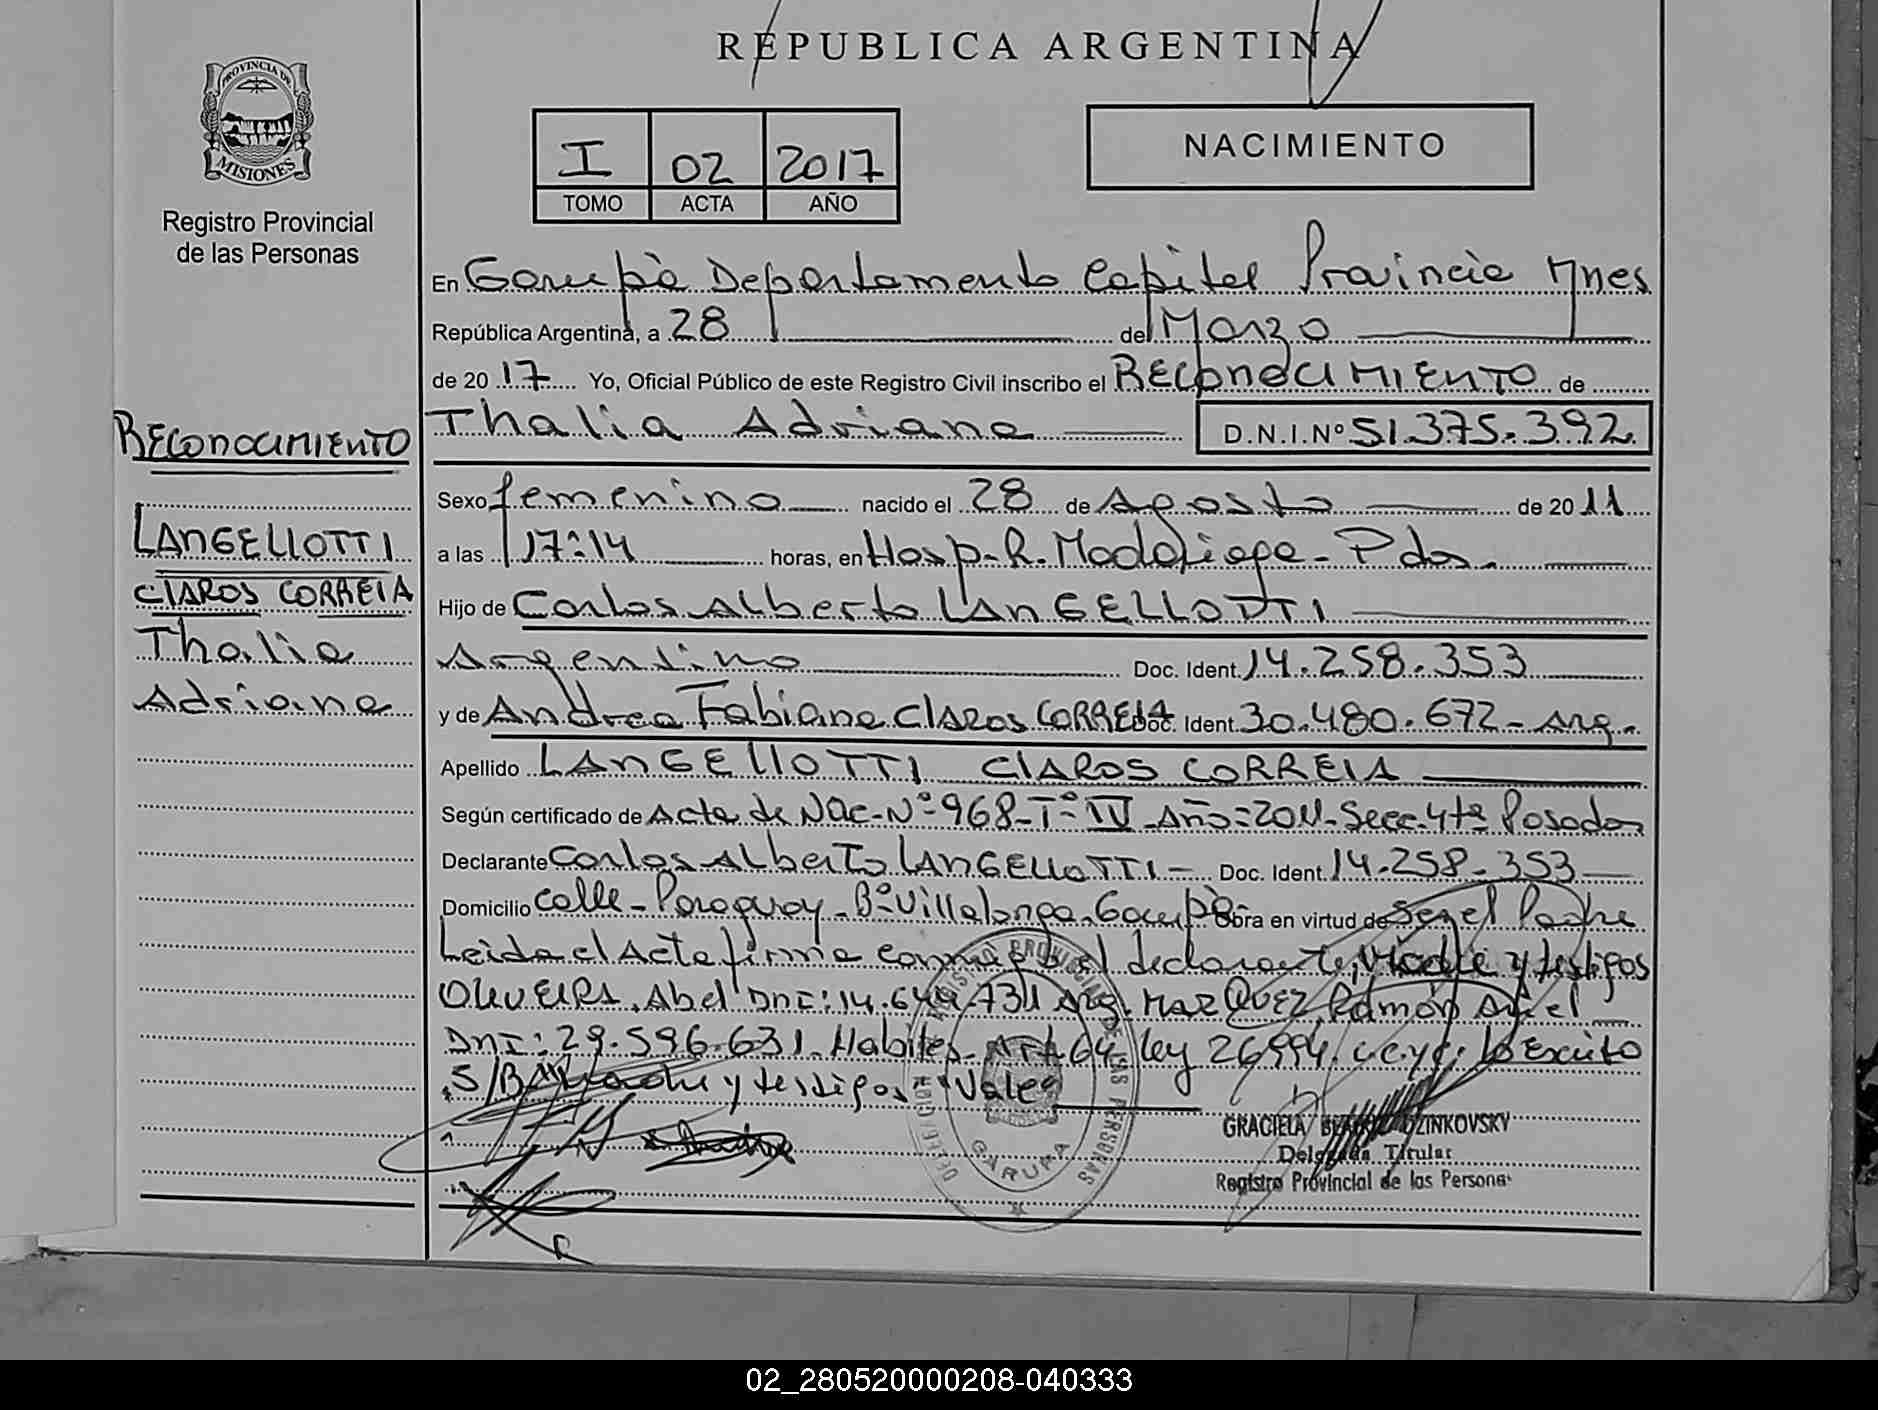 REPUBLICA ARGENTINA
PROVINCIA DE
MISIONES
Registro Provincial
de las Personas
I 02 2017
TOMO ACTA AÑO
NACIMIENTO
En Garupà Departamento Capital Provincia Mnes
República Argentina, a 28 de Marzo
de 2017 Yo, Oficial Público de este Registro Civil inscribo el RECONOCIMIENTO de
Thalia Adriana D.N.I.Nº 51.375.392.
RECONOCIMIENTO
LANGELLOTTI
CLAROS CORREIA
Thalia
Adriana
Sexo femenino nacido el 28 de Agosto de 2011
a las 17:14 horas, en Hosp. R. Madariaga - Pdas.
Hijo de Carlos Alberto LANGELLOTTI
Argentino Doc. Ident. 14.258.353
y de Andrea Fabiana CLAROS CORREIA Doc. Ident. 30.480.672 - Arg.
Apellido LANGELLOTTI CLAROS CORREIA
Según certificado de Acta de Nac. Nº 968 - Tº IV - Año: 2011 - Secc. 4ta Posadas
Declarante Carlos Alberto LANGELLOTTI - Doc. Ident. 14.258.353
Domicilio Calle - Paraguay - Bº Villalonga. Garupà Obra en virtud de Ser el Padre
Leida el Acta firma conmigo el declarante, Madre y testigos
OLIVEIRA, Abel DNI: 14.649.731 Arg. MARQUEZ, Ramón Ariel
DNI: 29.596.631. Habiles - Art. 64 - Ley 26994. C.C.y C. Lo Escrito
S/B Madre y testigos "Vale"
GARUPA
GRACIELA DZINKOVSKY
Delegada Titular
Registro Provincial de las Personas
02_280520000208-040333